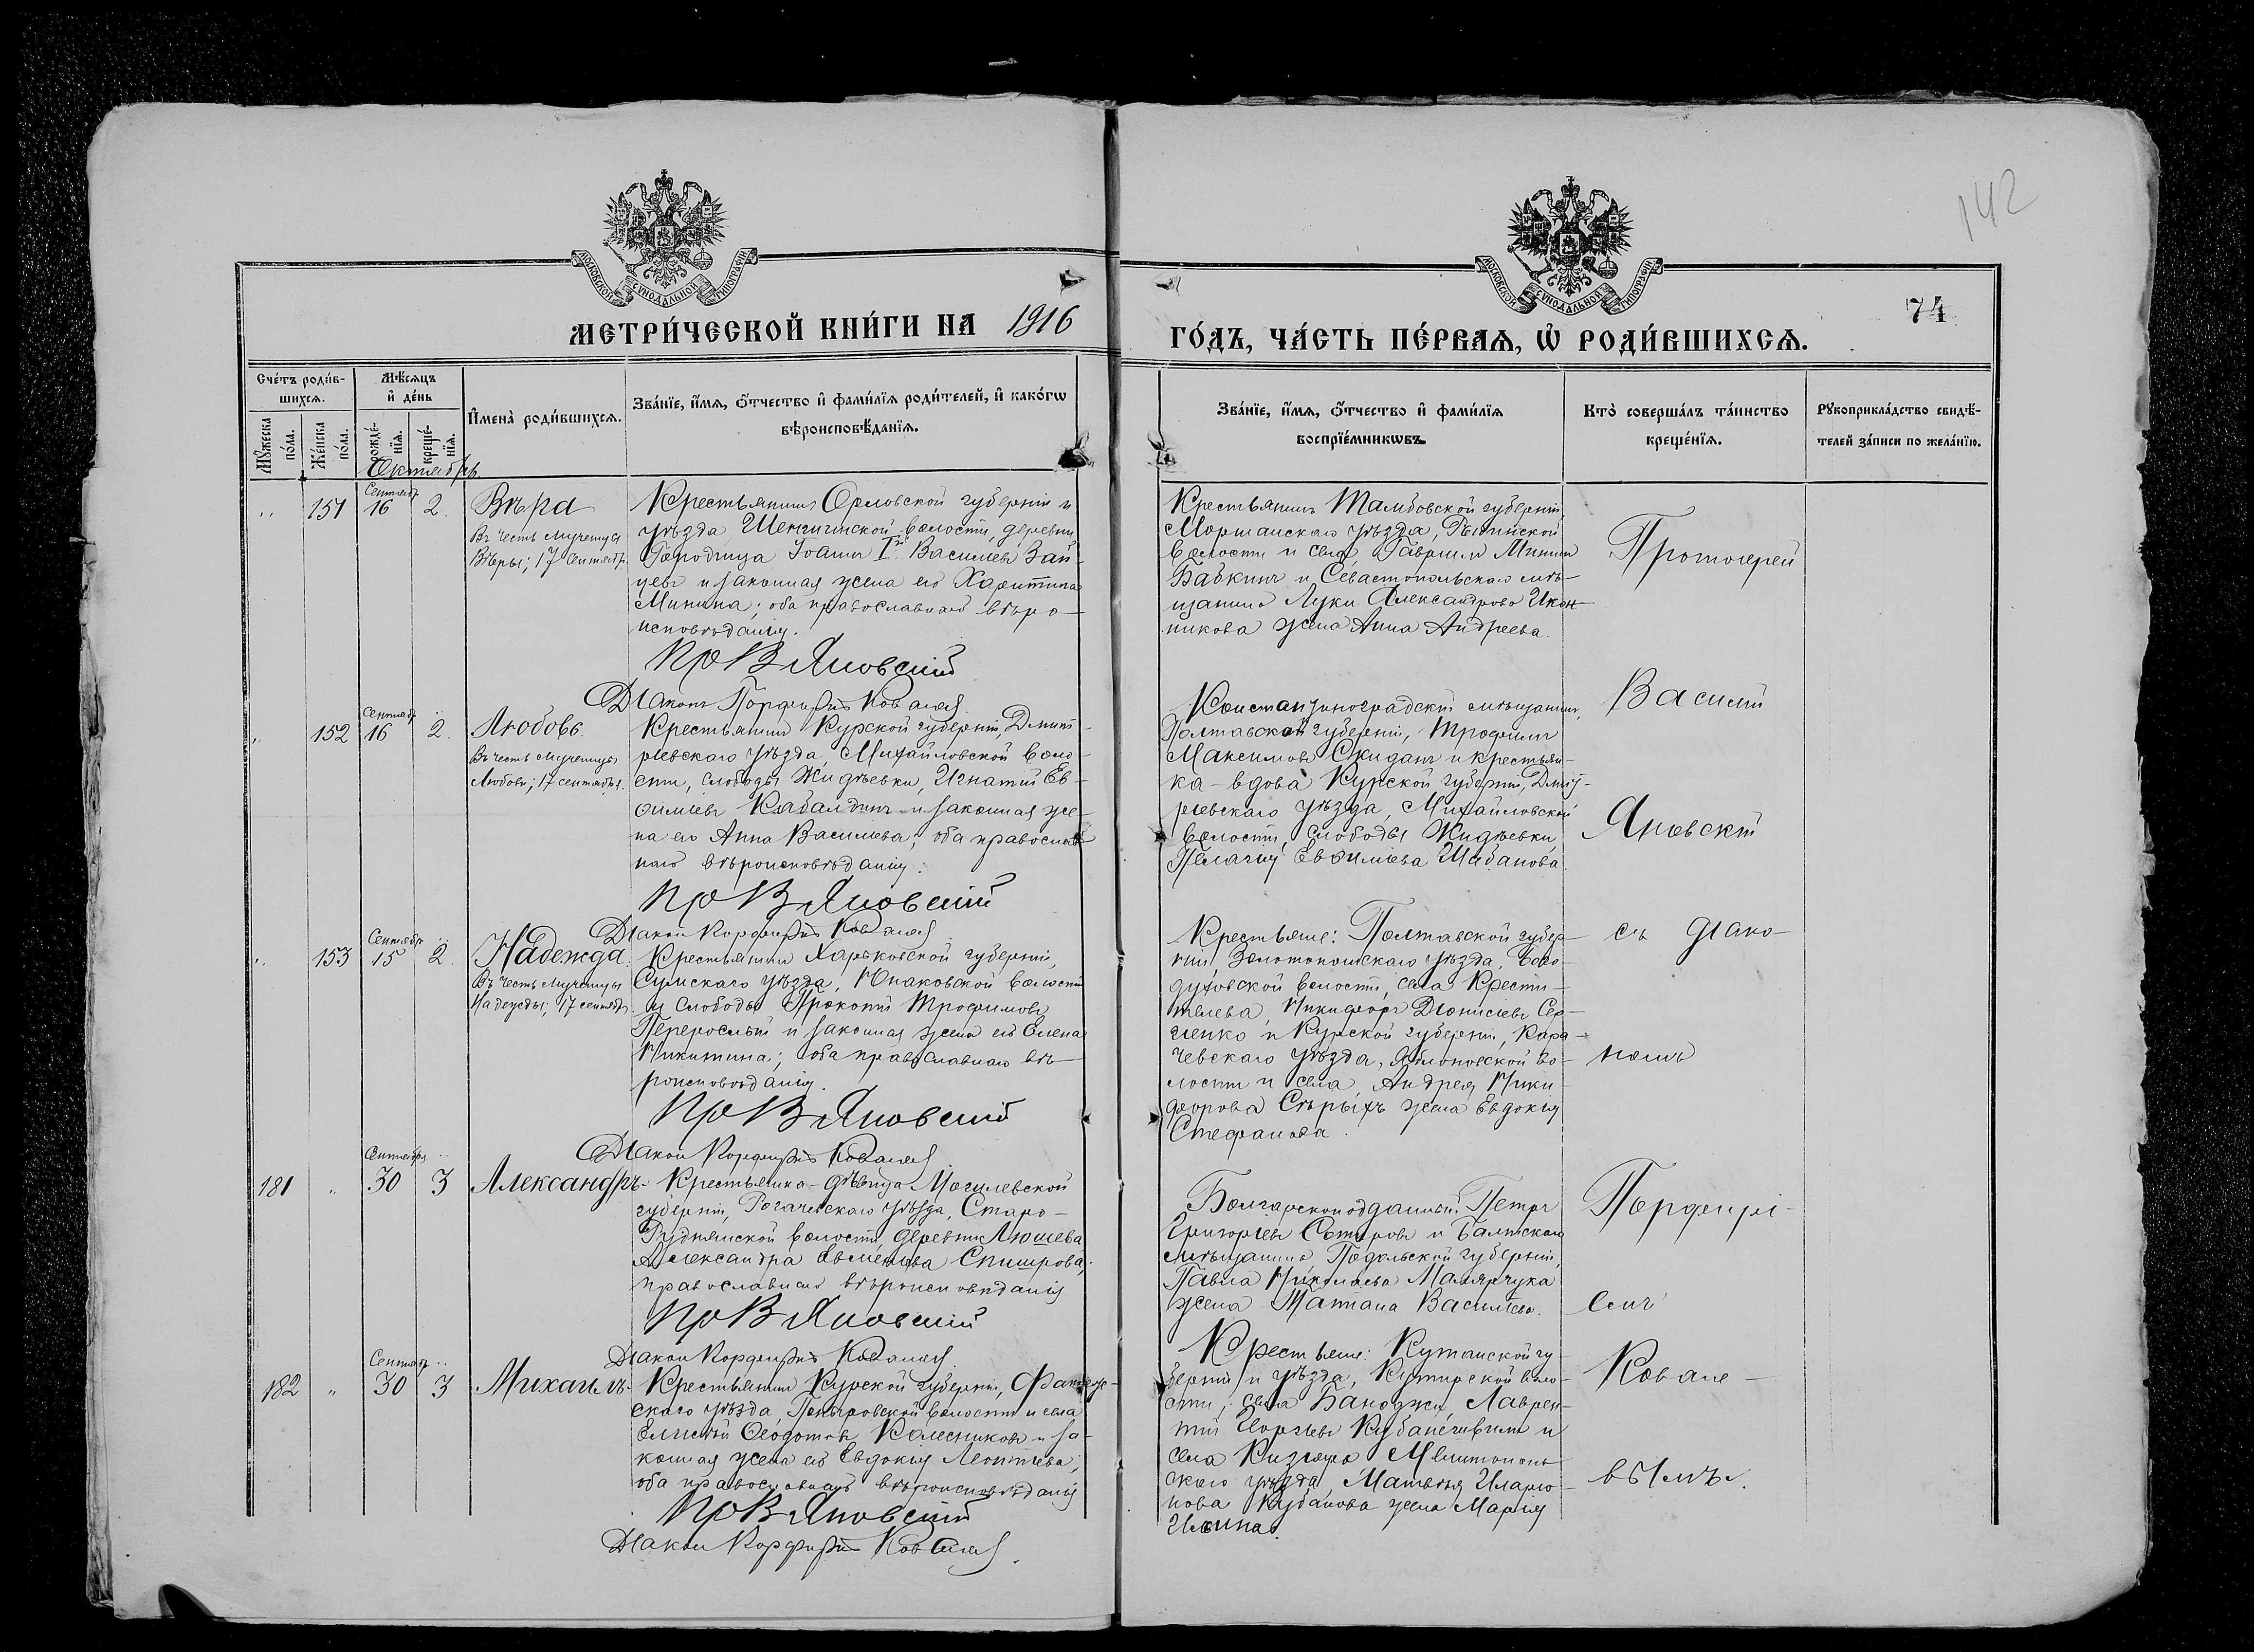 142
МОСКОВСКОЙ СѴНОДАЛЬНОЙ ТИПОГРАФІИ
МОСКОВСКОЙ СѴНОДАЛЬНОЙ ТИПОГРАФІИ
74
МЕТРИ́ЧЕСКОЙ КНИ́ГИ НА 1916
ГО́ДЪ, ЧА́СТЬ ПЕ́РВАѦ, Ѡ РОДИ́ВШИХСѦ.
Сче́тъ роди́в-
шихсѧ.
Мѣ́сѧцъ
и҆ де́нь
Мꙋ́жеска
по́ла.
Же́нска
по́ла.
рожде́-
нїѧ.
креще́-
нїѧ.
И҆мена̀ роди́вшихсѧ.
Зва́нїе, и҆́мѧ, ѻ҆́тчество и҆ фами́лїѧ роди́телей, и҆ како́гѡ
вѣроисповѣ́данїѧ.
Зва́нїе, и҆́мѧ, ѻ҆́тчество и҆ фами́лїѧ
воспрїе́мникѡвъ.
Кто̀ соверша́лъ та́инство
креще́нїѧ.
Рꙋкоприкла́дство свидѣ́-
телей за́писи по жела́нїю.
Октябрь
151
Сентябр.
16
2.
Вѣра
Въ честь мученицы
Вѣры; 17 Сентябр.
Крестьянинъ Орловской губерніи и
уѣзда, волости, деревни
Городища Іоаннъ Васильевъ Зай-
цевъ и законная жена его Харитина
Минина; оба православнаго вѣро-
исповѣданія.
Пр В Яновскій
Діаконъ Порфирій Ковалевъ
Крестьянинъ Тамбовской губерніи,
Моршанскаго уѣзда,
волости и села Гавриилъ Мининъ
Бабкинъ и Севастопольскаго мѣ-
щанина Луки Александрова Икон-
никова жена Анна Андреева.
Протоіерей
Василій
Яновскій
съ діако-
номъ
Порфирі-
емъ
Ковале-
вымъ.
152
Сентябр.
16
2.
Любовь.
Въ честь мученицы
Любови; 17 сентября.
Крестьянинъ Курской губерніи, Дмит-
ріевскаго уѣзда, Михайловской воло-
сти, слободы Жидѣевки, Игнатій Ев-
ѳиміевъ Кабалдинъ и законная же-
на его Анна Васильева; оба православ-
наго вѣроисповѣданія.
Пр В Яновскій
Діаконъ Порфирій Ковалевъ
Константиноградскій мѣщанинъ,
Полтавской губерніи, Трофимъ
Максимовъ Скиданъ и крестьян-
ка-вдова Курской губерніи, Дмит-
ріевскаго уѣзда, Михайловской
волости, слободы Жидѣевки
Пелагія Евѳиміева Шабанова.
153
Сентябр.
15
2.
Надежда.
Въ честь мученицы
Надежды; 17 сентябр.
Крестьянинъ Харьковской губерніи,
Сумскаго уѣзда, Юнаковской волости
и слободы Прокопій Трофимовъ
Перерослый и законная жена его Елена
Никитина; оба православнаго вѣ-
роисповѣданія.
Пр В Яновскій
Діаконъ Порфирій Ковалевъ
Крестьяне: Полтавской губер-
ніи, Золотоношскаго уѣзда, Бого-
духовской волости, села Крести-
телева, Никифоръ Діонисіевъ Сер-
гіенко и Курской губерніи, Кара-
чевскаго уѣзда, Яблоновской во-
лости и села, Андрея Ники-
форова Сѣрыхъ жена Евдокія
Стефанова.
181
Сентября
30
3
Александръ.
Крестьянка-дѣвица Могилевской
губерніи, Рогачевскаго уѣзда, Старо-
Руднянской волости, деревни Люшева
Александра Евменова
православнаго вѣроисповѣданія
Пр В Яновскій
Діаконъ Порфирій Ковалевъ
Болгарскоподданный Петръ
Григорьевъ Сотировъ и Балтскаго
мѣщанина, Подольской губерніи,
Павла Николаева Малярчука
жена Татіана Васильева.
182
Сентябр.
30
3
Михаилъ.
Крестьянинъ Курской губерніи, Фатеж-
скаго уѣзда, волости и села
Елисей Ѳедотовъ Колесниковъ и за-
конная жена его Евдокія Леонтіева;
оба православнаго вѣроисповѣданія
Пр В Яновскій
Діаконъ Порфирій Ковалевъ
Крестьяне: Кутаиской гу-
берніи и уѣзда, воло-
сти, села Баноджи, Лаврен-
тій и
села Кизляра Мелитополь-
скаго уѣзда, Матвѣя Иларіо-
нова Курбанова жена Марія
Ильина.